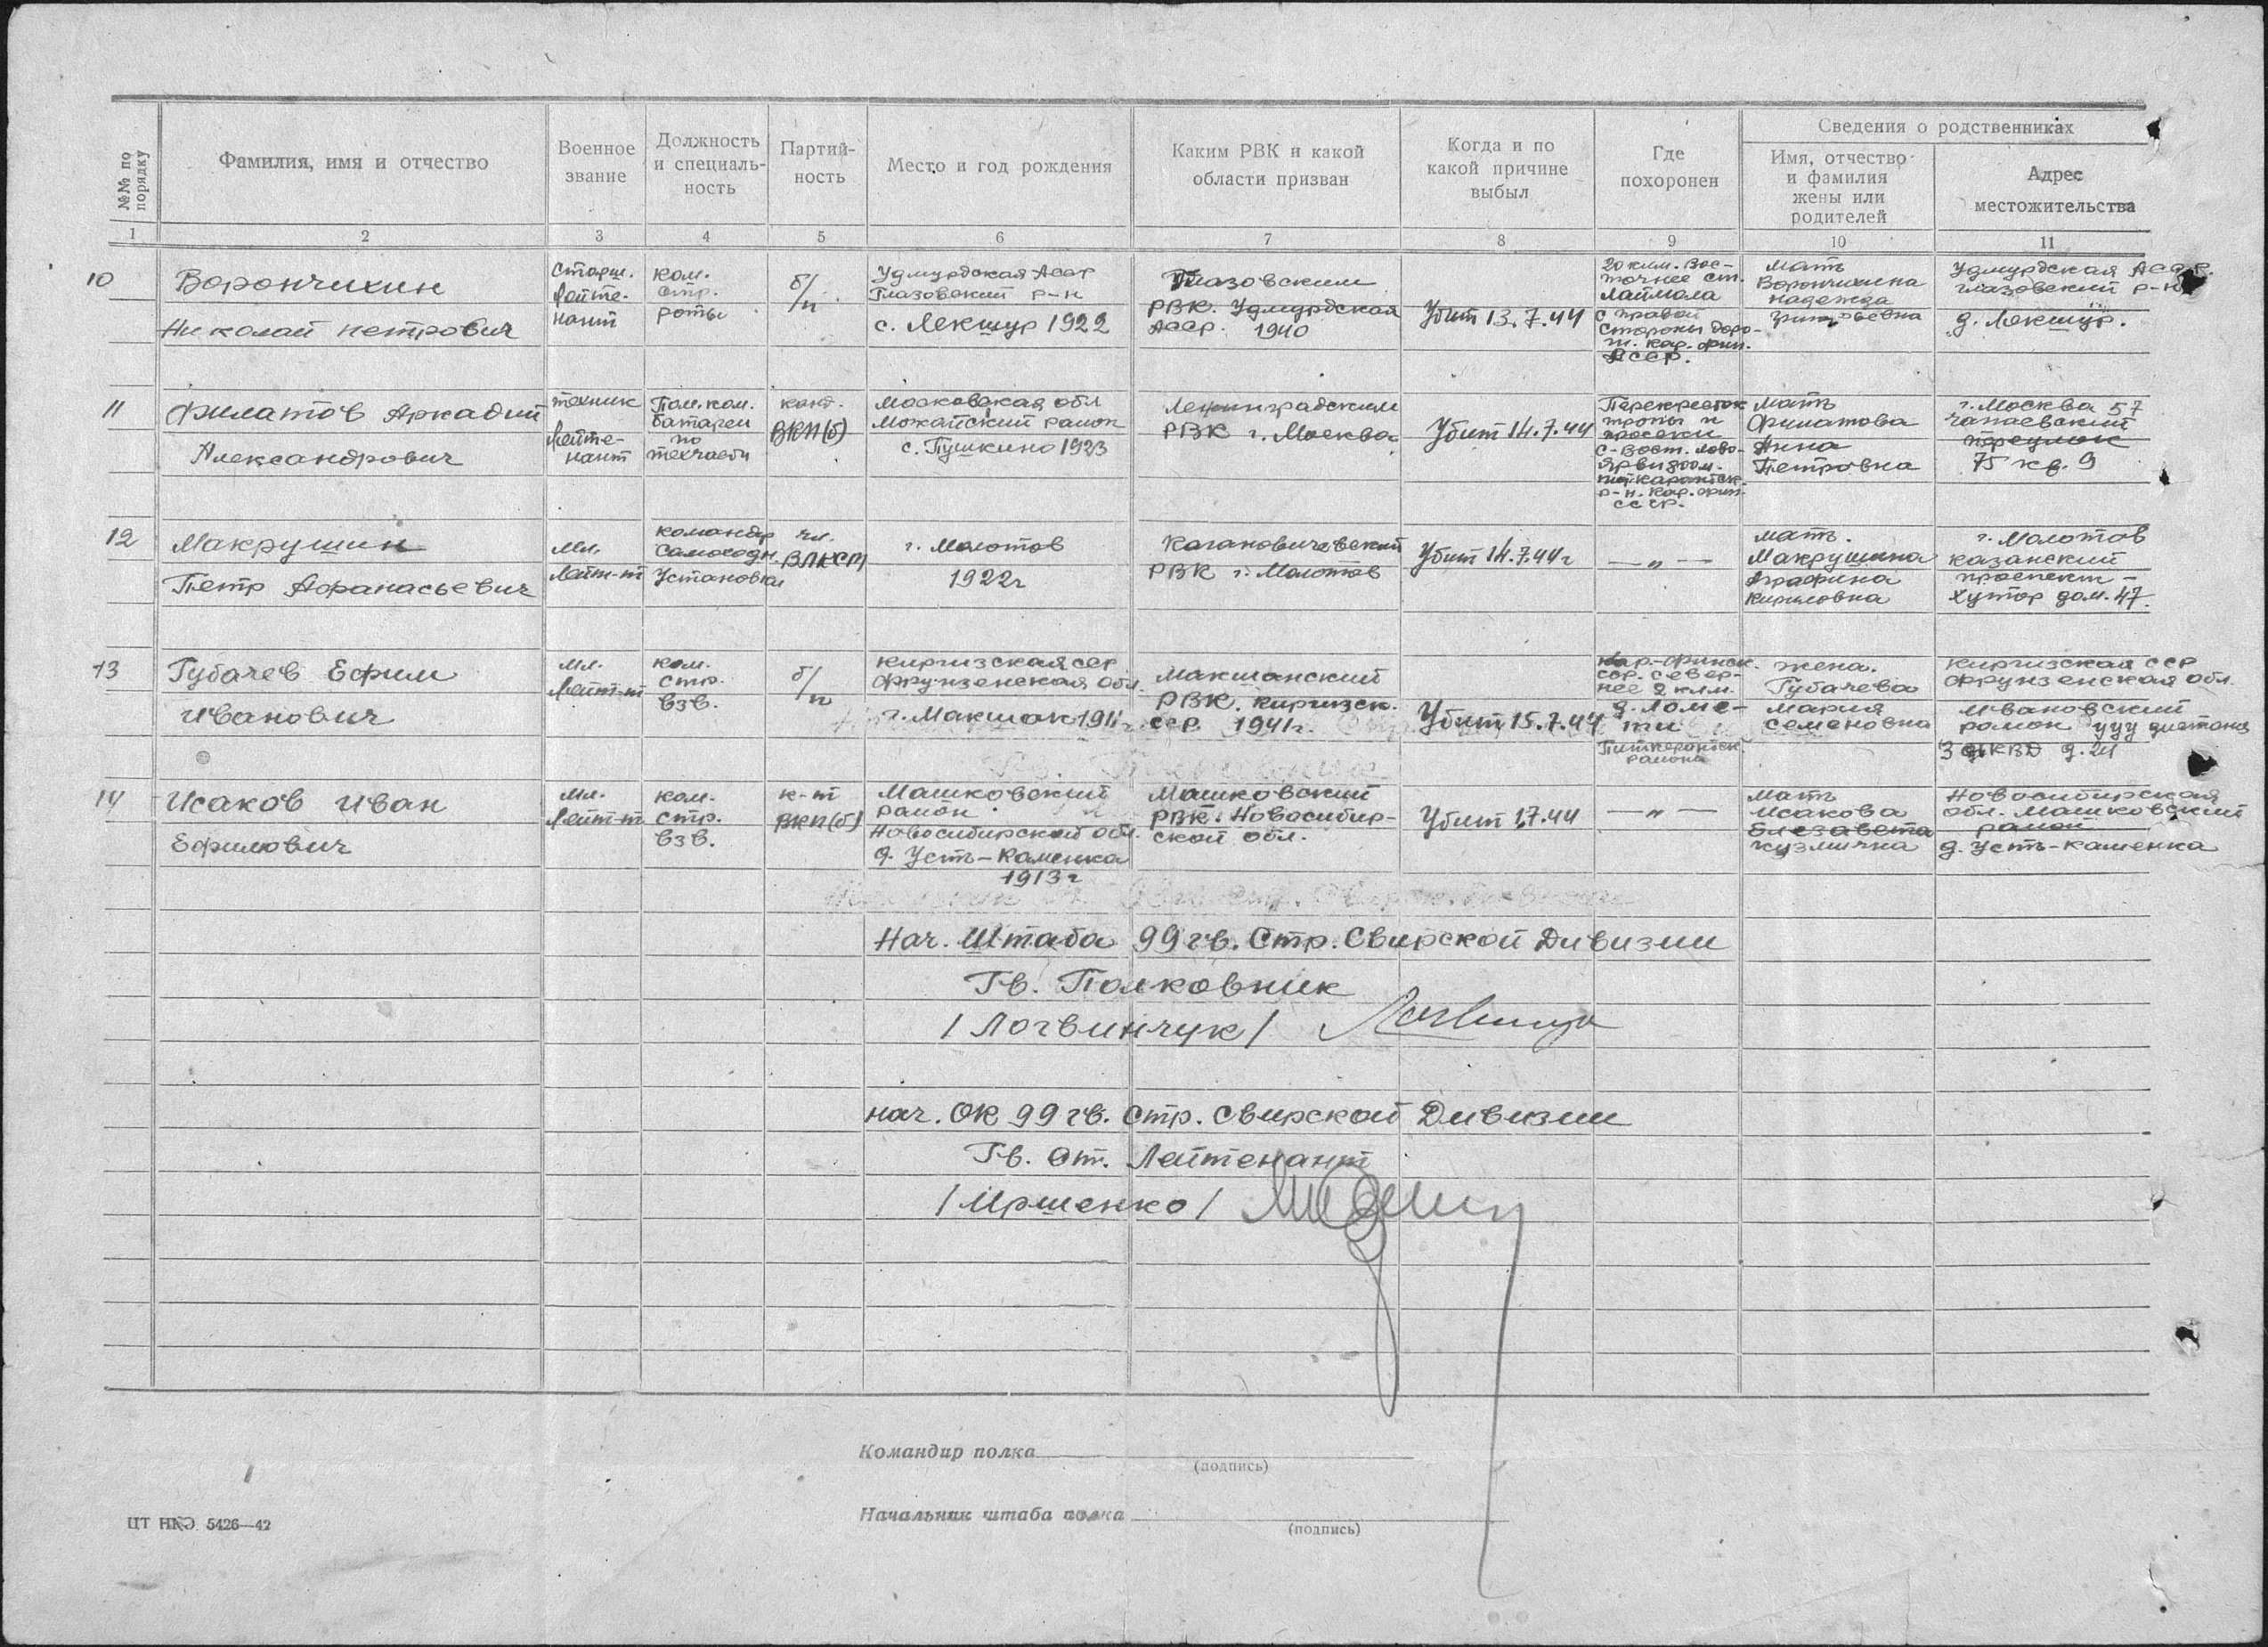 №№ по порядку
Фамилия, имя и отчество
Военное звание
Должность и специаль-ность
Партий-ность
Место и год рождения
Каким РВК и какой области призван
Когда и по какой причине выбыл
Где похоронен
Сведения о родственниках
Имя, отчество и фамилия жены или родителей
Адрес местожительства
1 2 3 4 5 6 7 8 9 10 11
10
Ворончихин
Николай Петрович
Старш.
Лейте-
нант
ком.
стр.
роты
б/п
Удмурдская Асср
Глазовский р-н
с. Лекшур 1922
Глазовским
РВК. Удмурдская
Асср. 1940
Убит 13.7.44
20 клм. Вос-
точнее ст.
Лаймала
с правой
Стороны доро-
ги. кар. фин.
Асср.
Мать
Ворончихина
Надежда
Удмурдская Асср.
Глазовский р-н
д. Лекшур.
11
Филатов Аркадий
Александрович
техник
Лейте-
нант
Пом. ком.
батареи
по
техчасти
канд.
ВКП(б)
Московская обл
Можайский район
с. Пушкино 1923
Ленинградским
РВК г. Москва
Убит 14.7.44
Перекресток
тропы и
просеки
с-вост. Лово-
ярви
р-н. Кар. фин.
ССР.
Мать
Филатова
Анна
Петровна
г. Москва 57
Чапаевский
переулок
75 кв. 9
12
Макрушин
Петр Афанасьевич
Мл.
Лейт-т
командир
Самоходн.
Установки
чл.
ВЛКСМ
г. Молотов
1922г
Кагановичевский
РВК г. Молотов
Убит 14.7.44г
— „ —
мать.
Макрушина
Аграфина
Кириловна
г. Молотов
Казанский
проспект —
Хутор дом. 47.
13
Губачев Ефим
Иванович
Мл.
Лейт-т
ком.
стр.
взв.
б/п
Киргизская сср
Фрунзенская обл.
г. Макшак 1911г
Макшанский
РВК. Киргизск.
сср. 1941г.
Убит 15.7.44
Кар.-финск.
сср. север-
нее 2 клм.
д. Ломе-
ти
Питкерантск
района
жена.
Губачева
Мария
Семеновна
Киргизская сср
Фрунзенская обл.
Ивановский
район
д. 21
14
Исаков Иван
Ефимович
Мл.
Лейт-т
ком.
стр.
взв.
к-т
ВКП(б)
Машковский
район
Новосибирской обл.
д. Усть-Каменка
1913г
Машковский
РВК. Новосибир-
ской обл.
Убит 1.7.44
— „ —
Мать
Исакова
Елезавета
Кузминна
Новосибирская
обл. Машковский
район
д. Усть-Каменка
Нач. Штаба 99 гв. Стр. Свирской Дивизии
Гв. Полковник
/ Логвинчук /
нач. ОК 99 гв. Стр. Свирской Дивизии
Гв. Ст. Лейтенант
/ Иршенко /
Командир полка
(подпись)
Начальник штаба полка
(подпись)
ЦТ НКЭ 5426—42